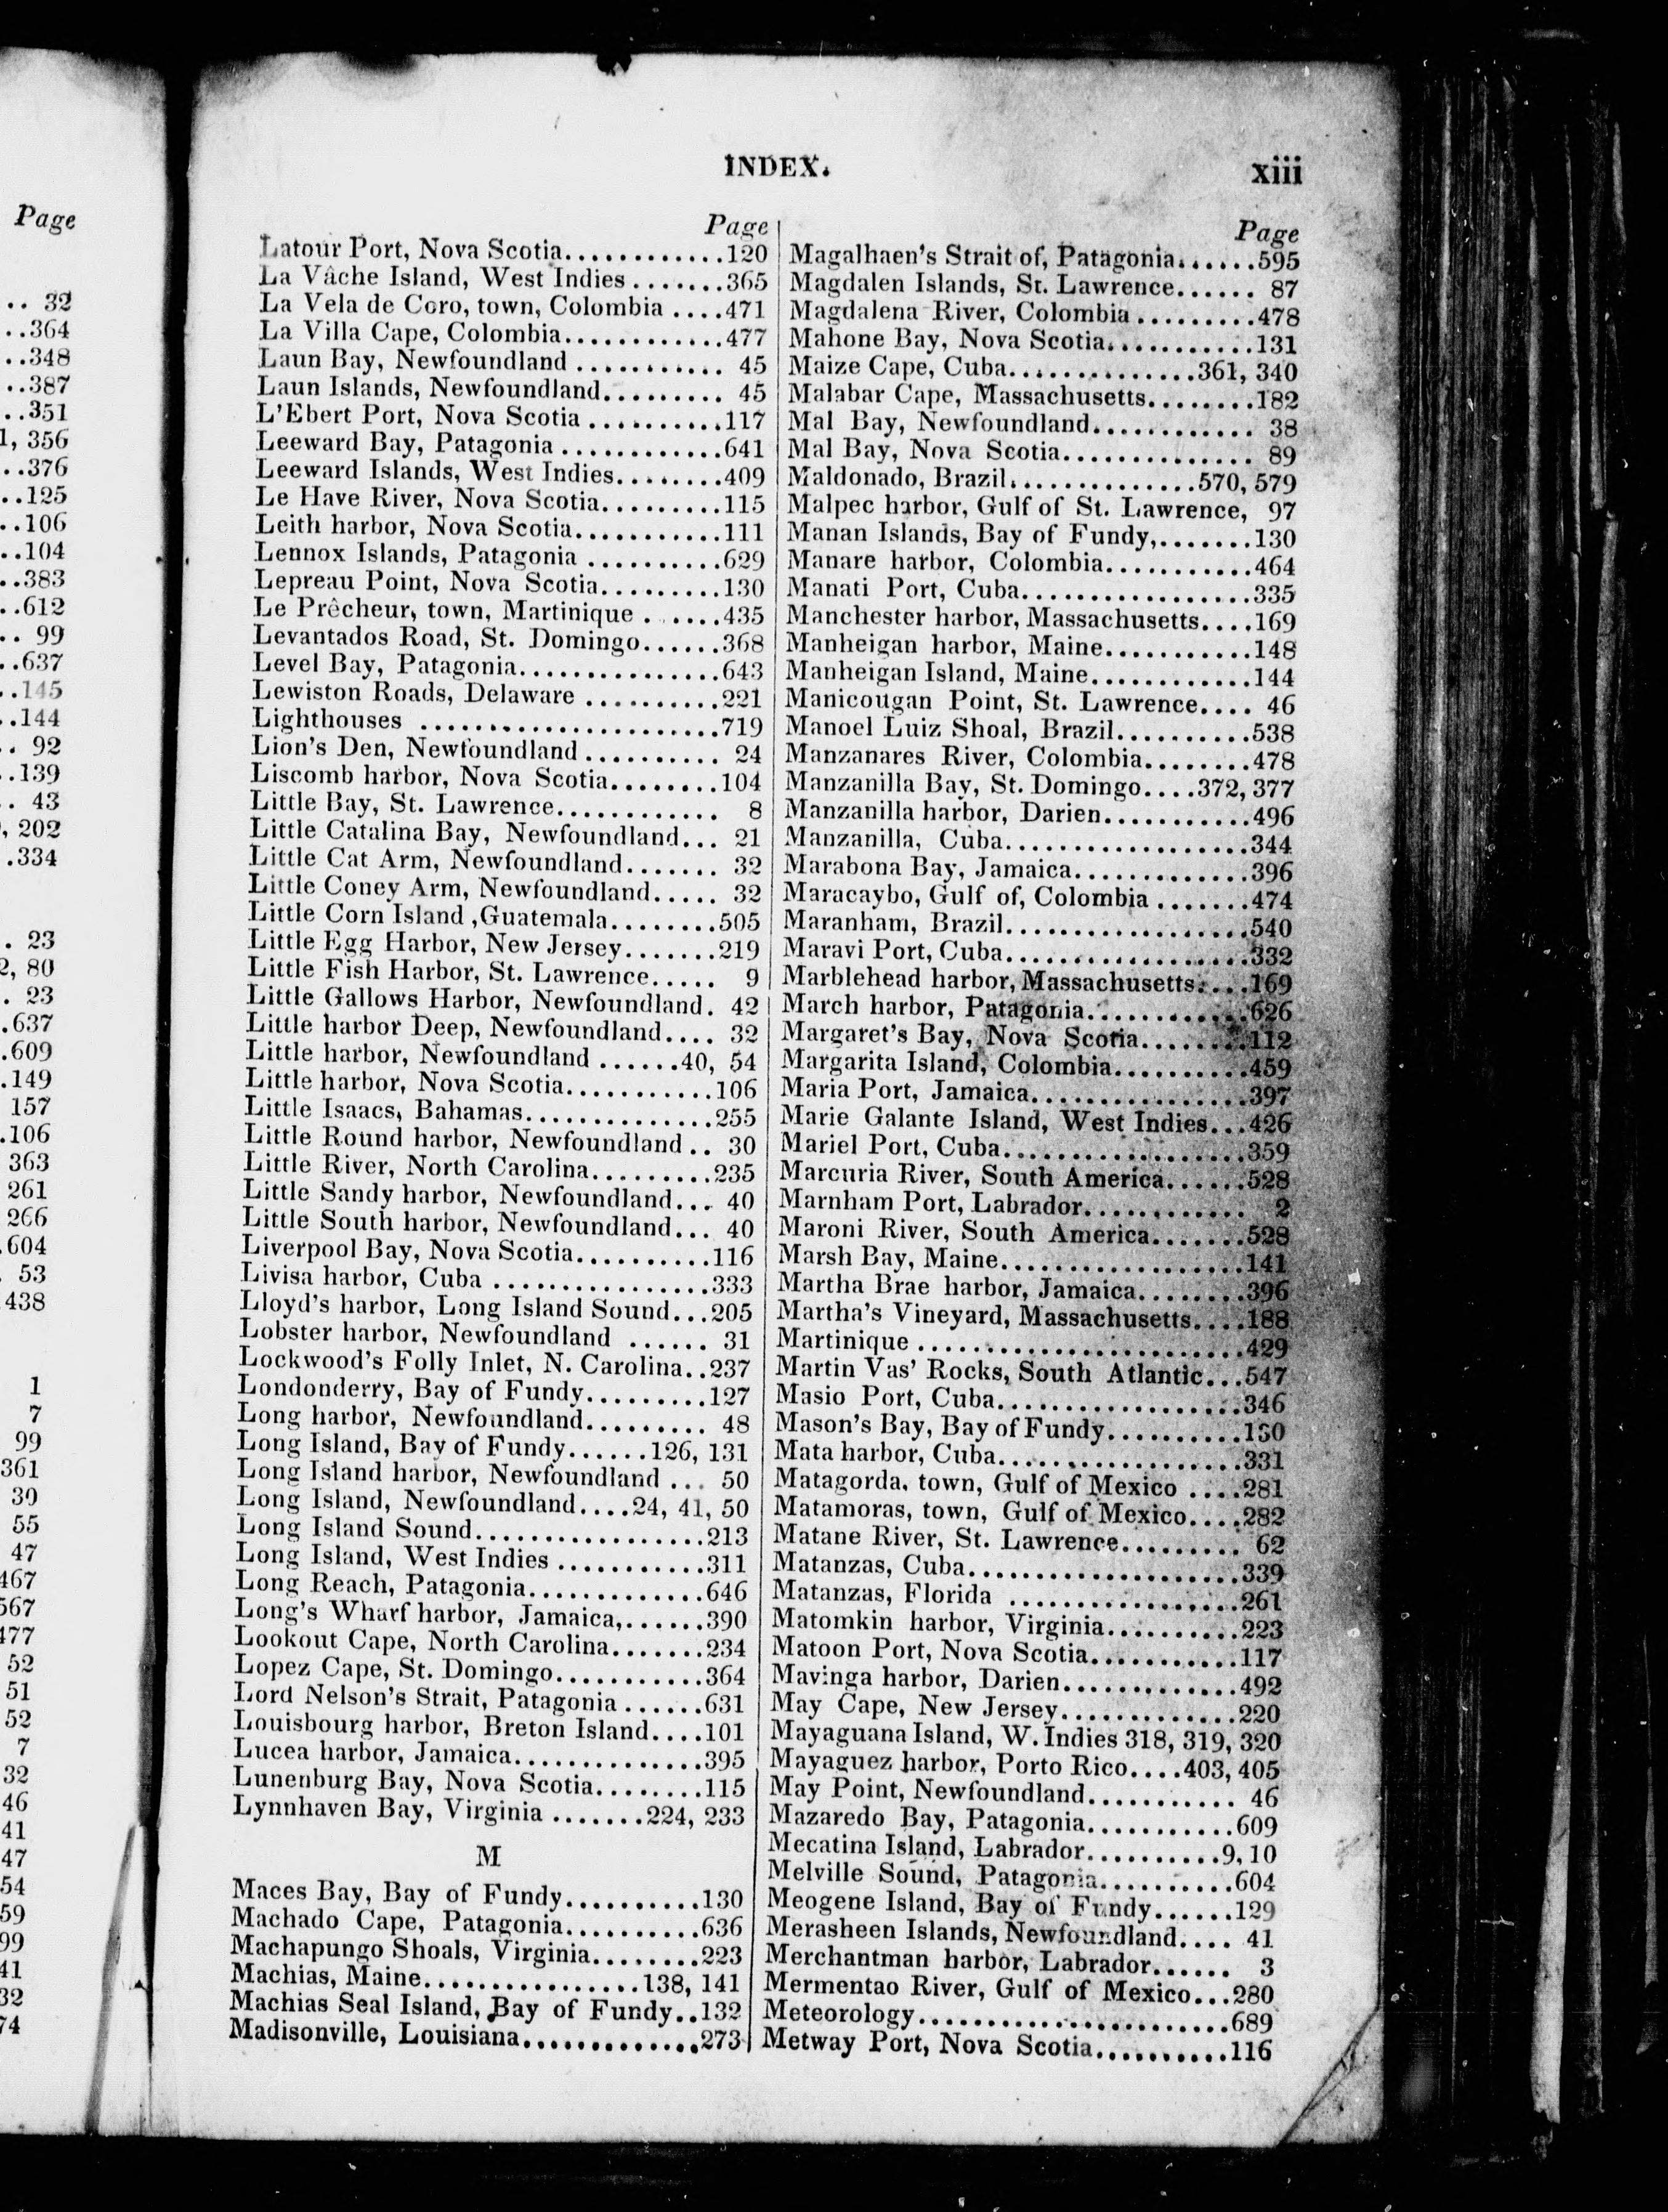 Page
.. 32
..364
..348
..387
..351
1, 356
..376
..125
..106
..104
..383
..612
.. 99
..637
..145
..144
.. 92
..139
.. 43
, 202
.334
. 23
2, 80
. 23
.637
.609
.149
157
.106
363
261
266
.604
53
438
1
7
99
361
39
55
47
467
567
177
52
51
52
7
32
46
41
47
54
59
99
41
32
74
INDEX.
xiii
Page
Latour Port, Nova Scotia............120
La Vâche Island, West Indies.......365
La Vela de Coro, town, Colombia ....471
La Villa Cape, Colombia............477
Laun Bay, Newfoundland ........... 45
Laun Islands, Newfoundland......... 45
L'Ebert Port, Nova Scotia ..........117
Leeward Bay, Patagonia ............641
Leeward Islands, West Indies........409
Le Have River, Nova Scotia.........115
Leith harbor, Nova Scotia...........111
Lennox Islands, Patagonia ..........629
Lepreau Point, Nova Scotia.........130
Le Prêcheur, town, Martinique ......435
Levantados Road, St. Domingo......368
Level Bay, Patagonia...............643
Lewiston Roads, Delaware ..........221
Lighthouses ......................719
Lion's Den, Newfoundland .......... 24
Liscomb harbor, Nova Scotia........104
Little Bay, St. Lawrence............. 8
Little Catalina Bay, Newfoundland... 21
Little Cat Arm, Newfoundland....... 32
Little Coney Arm, Newfoundland..... 32
Little Corn Island ,Guatemala........505
Little Egg Harbor, New Jersey.......219
Little Fish Harbor, St. Lawrence..... 9
Little Gallows Harbor, Newfoundland. 42
Little harbor Deep, Newfoundland.... 32
Little harbor, Newfoundland ......40, 54
Little harbor, Nova Scotia...........106
Little Isaacs, Bahamas..............255
Little Round harbor, Newfoundland.. 30
Little River, North Carolina.........235
Little Sandy harbor, Newfoundland... 40
Little South harbor, Newfoundland... 40
Liverpool Bay, Nova Scotia..........116
Livisa harbor, Cuba ................333
Lloyd's harbor, Long Island Sound...205
Lobster harbor, Newfoundland ...... 31
Lockwood's Folly Inlet, N. Carolina..237
Londonderry, Bay of Fundy.........127
Long harbor, Newfoundland.......... 48
Long Island, Bay of Fundy......126, 131
Long Island harbor, Newfoundland ... 50
Long Island, Newfoundland....24, 41, 50
Long Island Sound.................213
Long Island, West Indies ...........311
Long Reach, Patagonia.............646
Long's Wharf harbor, Jamaica,......390
Lookout Cape, North Carolina.......234
Lopez Cape, St. Domingo...........364
Lord Nelson's Strait, Patagonia ......631
Louisbourg harbor, Breton Island....101
Lucea harbor, Jamaica..............395
Lunenburg Bay, Nova Scotia........115
Lynnhaven Bay, Virginia .......224, 233
M
Maces Bay, Bay of Fundy..........130
Machado Cape, Patagonia..........636
Machapungo Shoals, Virginia........223
Machias, Maine................138, 141
Machias Seal Island, Bay of Fundy..132
Madisonville, Louisiana.............273
Page
Magalhaen's Strait of, Patagonia......595
Magdalen Islands, St. Lawrence...... 87
Magdalena River, Colombia.........478
Mahone Bay, Nova Scotia...........131
Maize Cape, Cuba..............361, 340
Malabar Cape, Massachusetts........182
Mal Bay, Newfoundland............ 38
Mal Bay, Nova Scotia.............. 89
Maldonado, Brazil..............570, 579
Malpec harbor, Gulf of St. Lawrence, 97
Manan Islands, Bay of Fundy,.......130
Manare harbor, Colombia...........464
Manati Port, Cuba.................335
Manchester harbor, Massachusetts....169
Manheigan harbor, Maine...........148
Manheigan Island, Maine............144
Manicougan Point, St. Lawrence.... 46
Manoel Luiz Shoal, Brazil..........538
Manzanares River, Colombia........478
Manzanilla Bay, St. Domingo....372, 377
Manzanilla harbor, Darien...........496
Manzanilla, Cuba..................344
Marabona Bay, Jamaica.............396
Maracaybo, Gulf of, Colombia .......474
Maranham, Brazil..................540
Maravi Port, Cuba..................332
Marblehead harbor, Massachusetts....169
March harbor, Patagonia............626
Margaret's Bay, Nova Scotia........112
Margarita Island, Colombia..........459
Maria Port, Jamaica................397
Marie Galante Island, West Indies...426
Mariel Port, Cuba..................359
Marcuria River, South America......528
Marnham Port, Labrador............ 2
Maroni River, South America.......528
Marsh Bay, Maine..................141
Martha Brae harbor, Jamaica........396
Martha's Vineyard, Massachusetts....188
Martinique ........................429
Martin Vas' Rocks, South Atlantic...547
Masio Port, Cuba..................346
Mason's Bay, Bay of Fundy..........130
Mata harbor, Cuba..................331
Matagorda, town, Gulf of Mexico ....281
Matamoras, town, Gulf of Mexico....282
Matane River, St. Lawrence......... 62
Matanzas, Cuba....................339
Matanzas, Florida .................261
Matomkin harbor, Virginia..........223
Matoon Port, Nova Scotia...........117
Mavinga harbor, Darien.............492
May Cape, New Jersey.............220
Mayaguana Island, W. Indies 318, 319, 320
Mayaguez harbor, Porto Rico....403, 405
May Point, Newfoundland........... 46
Mazaredo Bay, Patagonia...........609
Mecatina Island, Labrador..........9, 10
Melville Sound, Patagonia..........604
Meogene Island, Bay of Fundy......129
Merasheen Islands, Newfoundland.... 41
Merchantman harbor, Labrador...... 3
Mermentao River, Gulf of Mexico...280
Meteorology.......................689
Metway Port, Nova Scotia..........116